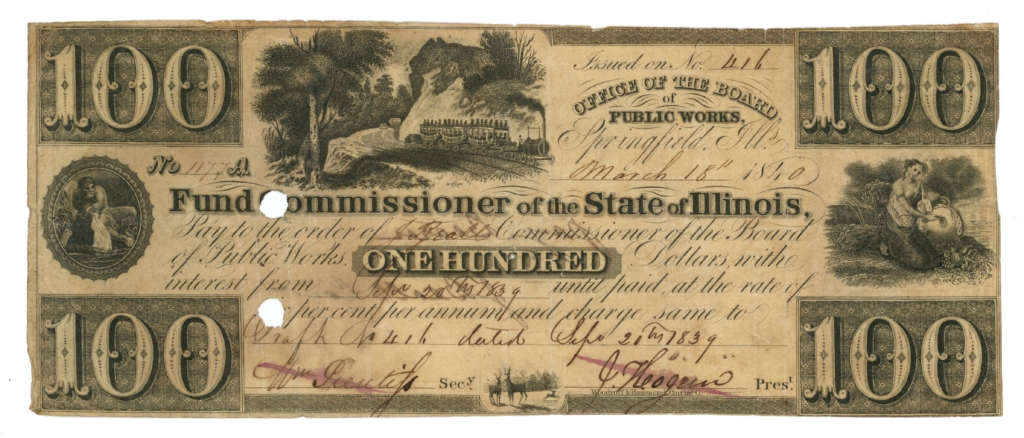 100
100
Issued on No. 416
OFFICE OF THE BOARD
of
PUBLIC WORKS,
Springfield, Ills.
March 18" 1840
No 1177 A
Fund Commissioner of the State of Illinois,
Pay to the order of Commissioner of the Board
of Public Works, ONE HUNDRED Dollars, with
interest from Sept 20th 1839 until paid, at the rate of
per cent per annum and charge same to
Draft No 416 dated Sept 20th 1839
Wm Prentiss Secy. Prest.
100
100